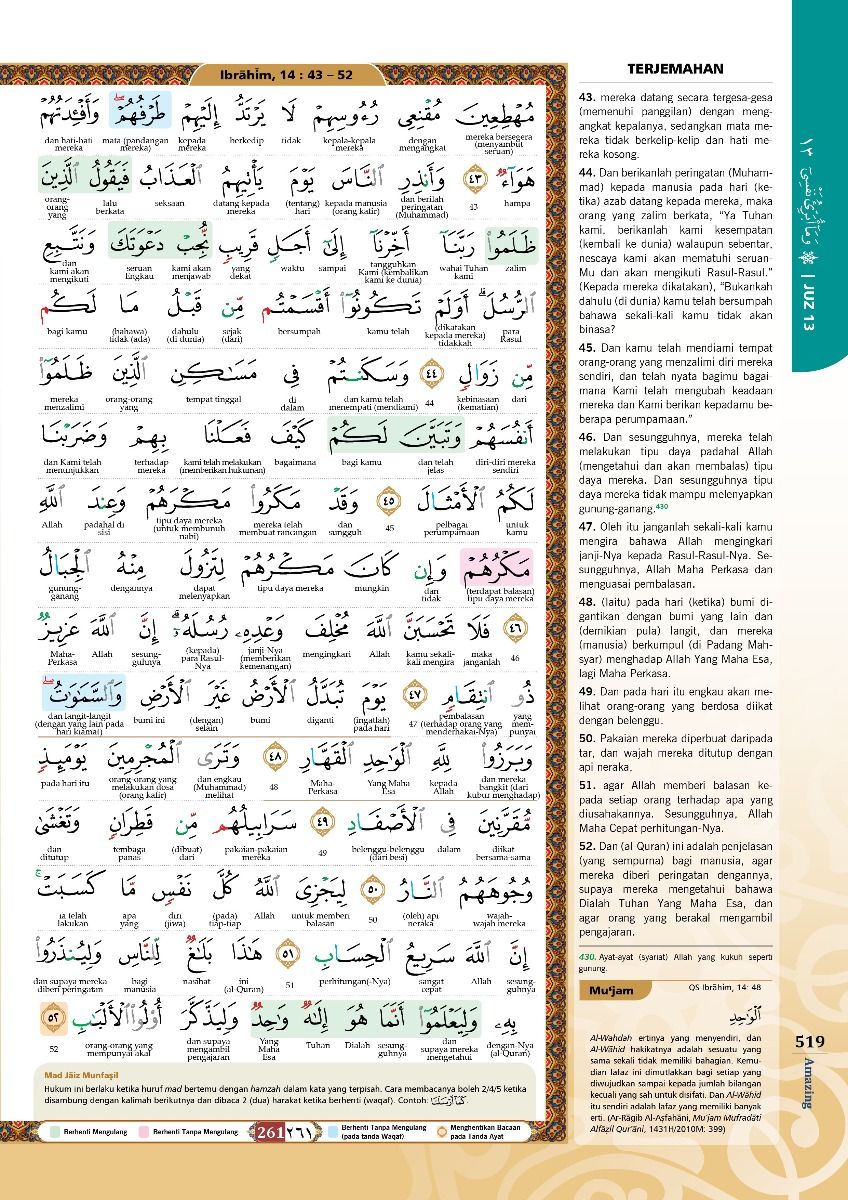 Ibrāhīm, 14 : 43 – 52
مُهْطِعِينَ مُقْنِعِى رُءُوسِهِمْ لَا يَرْتَدُّ إِلَيْهِمْ طَرْفُهُمْ وَأَفْـِٔدَتُهُمْ
mereka bersegera (menyambut seruan) dengan mengangkat kepala-kepala mereka tidak berkedip kepada mereka mata (pandangan mereka) dan hati-hati mereka
هَوَآءٌ ٤٣ وَأَنذِرِ ٱلنَّاسَ يَوْمَ يَأْتِيهِمُ ٱلْعَذَابُ فَيَقُولُ ٱلَّذِينَ
hampa 43 dan berilah peringatan (Muhammad) kepada manusia (orang kafir) (tentang) hari datang kepada mereka seksaan lalu berkata orang-orang yang
ظَلَمُوا۟ رَبَّنَآ أَخِّرْنَآ إِلَىٰٓ أَجَلٍ قَرِيبٍ نُّجِبْ دَعْوَتَكَ وَنَتَّبِعِ
zalim wahai Tuhan kami tangguhkan Kami (kembalikan kami ke dunia) sampai waktu yang dekat kami akan menjawab seruan Engkau dan kami akan mengikuti
ٱلرُّسُلَ ۗ أَوَلَمْ تَكُونُوٓا۟ أَقْسَمْتُم مِّن قَبْلُ مَا لَكُم
para Rasul (dikatakan kepada mereka) tidakkah kamu telah bersumpah sejak (dari) dahulu (di dunia) (bahawa) tidak (ada) bagi kamu
مِّن زَوَالٍ ٤٤ وَسَكَنتُمْ فِى مَسَـٰكِنِ ٱلَّذِينَ ظَلَمُوٓا۟
dari kebinasaan (kematian) 44 dan kamu telah menempati (mendiami) di dalam tempat tinggal orang-orang yang mereka menzalimi
أَنفُسَهُمْ وَتَبَيَّنَ لَكُمْ كَيْفَ فَعَلْنَا بِهِمْ وَضَرَبْنَا
diri-diri mereka sendiri dan telah jelas bagi kamu bagaimana kami telah melakukan (memberikan hukuman) terhadap mereka dan Kami telah menunjukkan
لَكُمُ ٱلْأَمْثَالَ ٤٥ وَقَدْ مَكَرُوا۟ مَكْرَهُمْ وَعِندَ ٱللَّهِ
untuk kamu pelbagai perumpamaan 45 dan sungguh mereka telah membuat rancangan tipu daya mereka (untuk membunuh nabi) padahal di sisi Allah
مَكْرُهُمْ وَإِن كَانَ مَكْرُهُمْ لِتَزُولَ مِنْهُ ٱلْجِبَالُ
(terdapat balasan) tipu daya mereka dan tidak mungkin tipu daya mereka dapat melenyapkan dengannya gunung-ganang
٤٦ فَلَا تَحْسَبَنَّ ٱللَّهَ مُخْلِفَ وَعْدِهِۦ رُسُلَهُۥٓ ۗ إِنَّ ٱللَّهَ عَزِيزٌ
46 maka janganlah kamu sekali-kali mengira Allah mengingkari janji-Nya (memberikan kemenangan) (kepada) para Rasul-Nya sesung-guhnya Allah Maha-Perkasa
ذُو ٱنتِقَامٍ ٤٧ يَوْمَ تُبَدَّلُ ٱلْأَرْضُ غَيْرَ ٱلْأَرْضِ وَٱلسَّمَـٰوَٰتُ ۖ
yang mem-punyai pembalasan (terhadap orang yang menderhakai-Nya) 47 (ingatlah) pada hari diganti bumi (dengan) selain bumi ini dan langit-langit (dengan yang lain pada hari kiamat)
وَبَرَزُوا۟ لِلَّهِ ٱلْوَٰحِدِ ٱلْقَهَّارِ ٤٨ وَتَرَى ٱلْمُجْرِمِينَ يَوْمَئِذٍ
dan mereka bangkit (dari kubur menghadap) kepada Allah Yang Maha Esa Maha-Perkasa 48 dan engkau (Muhammad) melihat orang-orang yang melakukan dosa (orang kafir) pada hari itu
مُّقَرَّنِينَ فِى ٱلْأَصْفَادِ ٤٩ سَرَابِيلُهُم مِّن قَطِرَانٍ وَتَغْشَىٰ
diikat bersama-sama dalam belenggu-belenggu (dari besi) 49 pakaian-pakaian mereka (dibuat) dari tembaga panas dan ditutup
وُجُوهَهُمُ ٱلنَّارُ ٥٠ لِيَجْزِىَ ٱللَّهُ كُلَّ نَفْسٍ مَّا كَسَبَتْ ۚ
wajah-wajah mereka (oleh) api neraka 50 untuk memberi balasan Allah (pada) tiap-tiap diri (jiwa) apa yang ia telah lakukan
إِنَّ ٱللَّهَ سَرِيعُ ٱلْحِسَابِ ٥١ هَـٰذَا بَلَـٰغٌ لِّلنَّاسِ وَلِيُنذَرُوا۟
sesung-guhnya Allah sangat cepat perhitungan(-Nya) 51 ini (al-Quran) nasihat bagi manusia dan supaya mereka diberi peringatan
بِهِۦ وَلِيَعْلَمُوٓا۟ أَنَّمَا هُوَ إِلَـٰهٌ وَٰحِدٌ وَلِيَذَّكَّرَ أُو۟لُوا۟ ٱلْأَلْبَـٰبِ ٥٢
dengan-Nya (al-Quran) dan supaya mereka mengetahui sesung-guhnya Dialah Tuhan Yang Maha Esa dan supaya mengambil pengajaran orang-orang yang mempunyai akal 52
Mad Jāiz Munfaṣil
Hukum ini berlaku ketika huruf mad bertemu dengan hamzah dalam kata yang terpisah. Cara membacanya boleh 2/4/5 ketika
disambung dengan kalimah berikutnya dan dibaca 2 (dua) harakat ketika berhenti (waqaf). Contoh:
Berhenti Mengulang Berhenti Tanpa Mengulang 261 ٢٦١ Berhenti Tanpa Mengulang (pada tanda Waqaf) Menghentikan Bacaan pada Tanda Ayat
TERJEMAHAN
43. mereka datang secara tergesa-gesa
(memenuhi panggilan) dengan meng-
angkat kepalanya, sedangkan mata me-
reka tidak berkelip-kelip dan hati me-
reka kosong.
44. Dan berikanlah peringatan (Muham-
mad) kepada manusia pada hari (ke-
tika) azab datang kepada mereka, maka
orang yang zalim berkata, "Ya Tuhan
kami, berikanlah kami kesempatan
(kembali ke dunia) walaupun sebentar,
nescaya kami akan mematuhi seruan-
Mu dan akan mengikuti Rasul-Rasul."
(Kepada mereka dikatakan), "Bukankah
dahulu (di dunia) kamu telah bersumpah
bahawa sekali-kali kamu tidak akan
binasa?
45. Dan kamu telah mendiami tempat
orang-orang yang menzalimi diri mereka
sendiri, dan telah nyata bagimu bagai-
mana Kami telah mengubah keadaan
mereka dan Kami berikan kepadamu be-
berapa perumpamaan."
46. Dan sesungguhnya, mereka telah
melakukan tipu daya padahal Allah
(mengetahui dan akan membalas) tipu
daya mereka. Dan sesungguhnya tipu
daya mereka tidak mampu melenyapkan
gunung-ganang.430
47. Oleh itu janganlah sekali-kali kamu
mengira bahawa Allah mengingkari
janji-Nya kepada Rasul-Rasul-Nya. Se-
sungguhnya, Allah Maha Perkasa dan
menguasai pembalasan.
48. (Iaitu) pada hari (ketika) bumi di-
gantikan dengan bumi yang lain dan
(demikian pula) langit, dan mereka
(manusia) berkumpul (di Padang Mah-
syar) menghadap Allah Yang Maha Esa,
lagi Maha Perkasa.
49. Dan pada hari itu engkau akan me-
lihat orang-orang yang berdosa diikat
dengan belenggu.
50. Pakaian mereka diperbuat daripada
tar, dan wajah mereka ditutup dengan
api neraka,
51. agar Allah memberi balasan ke-
pada setiap orang terhadap apa yang
diusahakannya. Sesungguhnya, Allah
Maha Cepat perhitungan-Nya.
52. Dan (al Quran) ini adalah penjelasan
(yang sempurna) bagi manusia, agar
mereka diberi peringatan dengannya,
supaya mereka mengetahui bahawa
Dialah Tuhan Yang Maha Esa, dan
agar orang yang berakal mengambil
pengajaran.
430. Ayat-ayat (syariat) Allah yang kukuh seperti
gunung.
Mu'jam QS Ibrāhīm, 14: 48
اَلْوَاحِدِ
Al-Wahdah ertinya yang menyendiri, dan
Al-Wāhid hakikatnya adalah sesuatu yang
sama sekali tidak memiliki bahagian. Kemu-
dian lafaz ini dimutlakkan bagi setiap yang
diwujudkan sampai kepada jumlah bilangan
kecuali yang sah untuk disifati. Dan Al-Wāhid
itu sendiri adalah lafaz yang memiliki banyak
erti. (Ar-Rāgib Al-Aṣfahāni, Mu'jam Mufradāti
Alfāẓil Qur'āni, 1431H/2010M: 399)
وَمَآ أُبَرِّئُ نَفْسِىٓ ١٣ | JUZ 13
519
Amazing